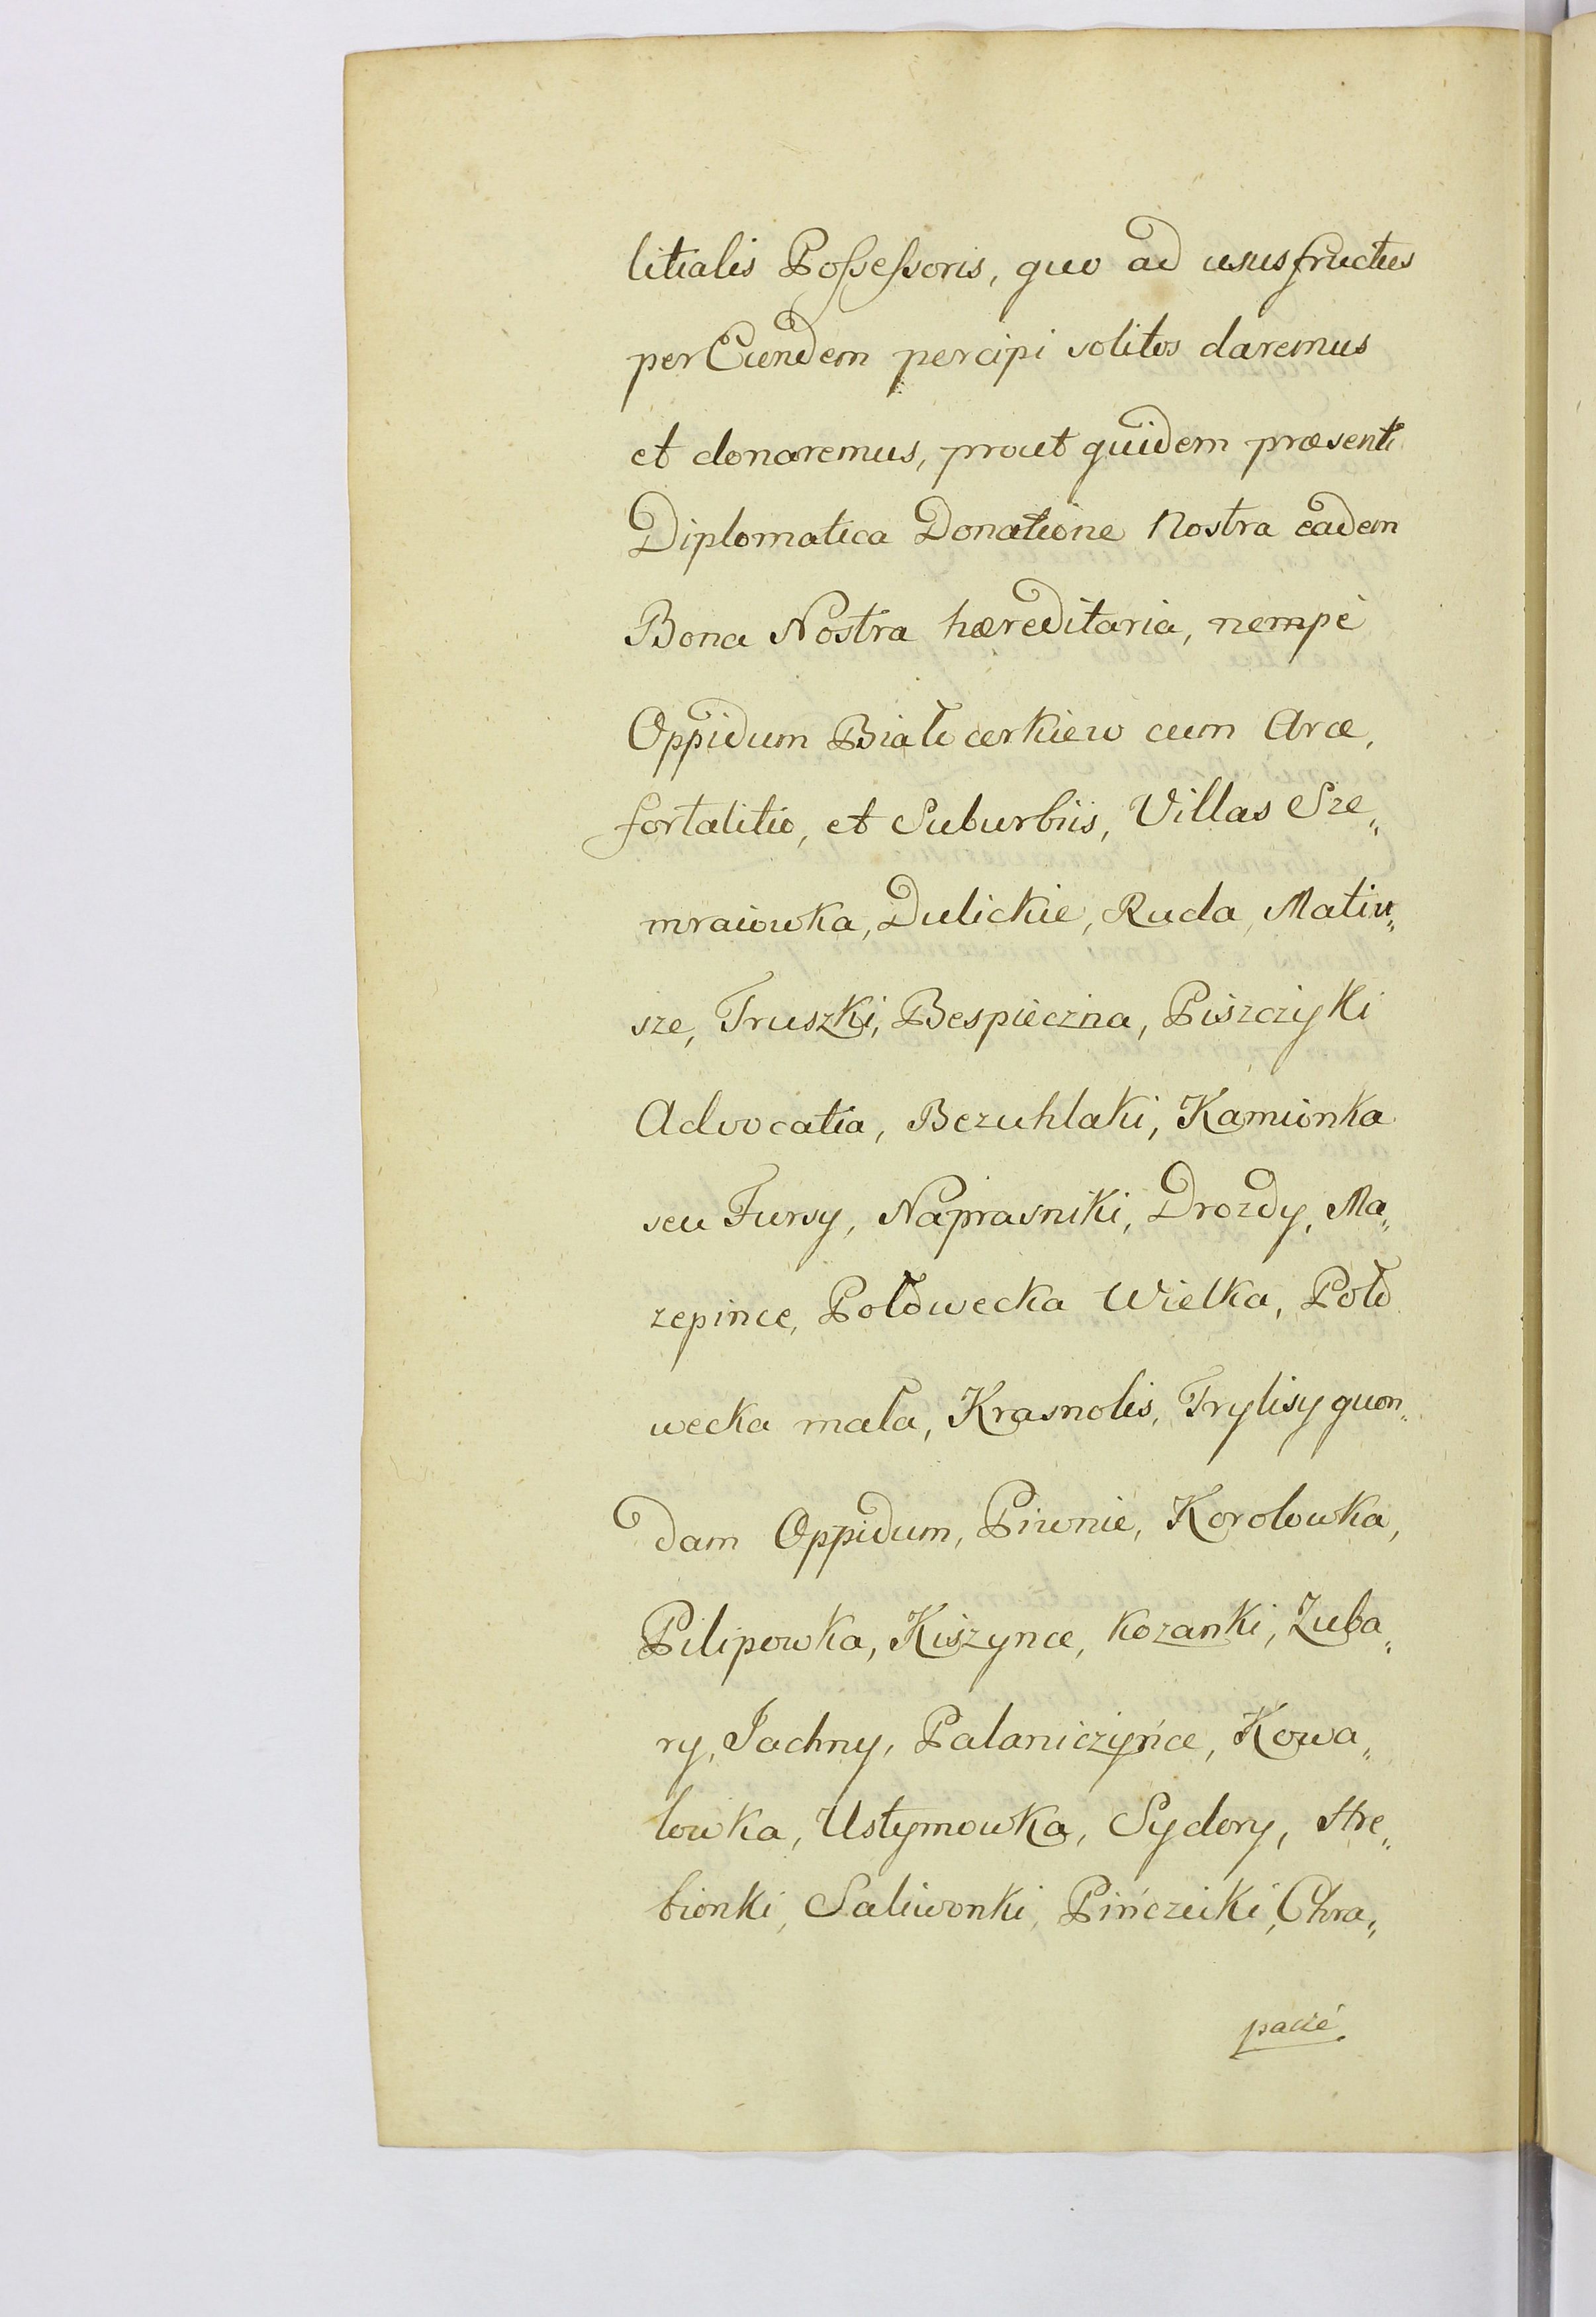 litialis Possessoris, quo ad ususfructus
per Eundem percipi solitos daremus
et donaremus, prout quidem præsenti
Diplomatica Donatione Nostra eadem
Bona Nostra hæreditaria, nempè
Oppidum Białocerkiew cum Arce,
fortalitio, et Suburbiis, Villas Sze„
mraiowka, Dulickie, Ruda, Matiu„
sze, Truszki, Bespieczna, Piszczyki
Advocatia, Bezuhlaki, Kamionka
seu Fursy, Naprasniki, Drozdy, Ma„
zepince, Połowecka Wielka, Poło
wecka mała, Krasnolis, Trylisy quon„
dam Oppidum, Piwnie, Korolowka,
Pilipowka, Kiszynce, Kozanki, Zuba„
ry, Jachny, Palaniczyńce, Kowa„
lowka, Ustymowka, Sydory, Hre„
bionki, Saliwonki, Pińczuki, Chra„
pacié.